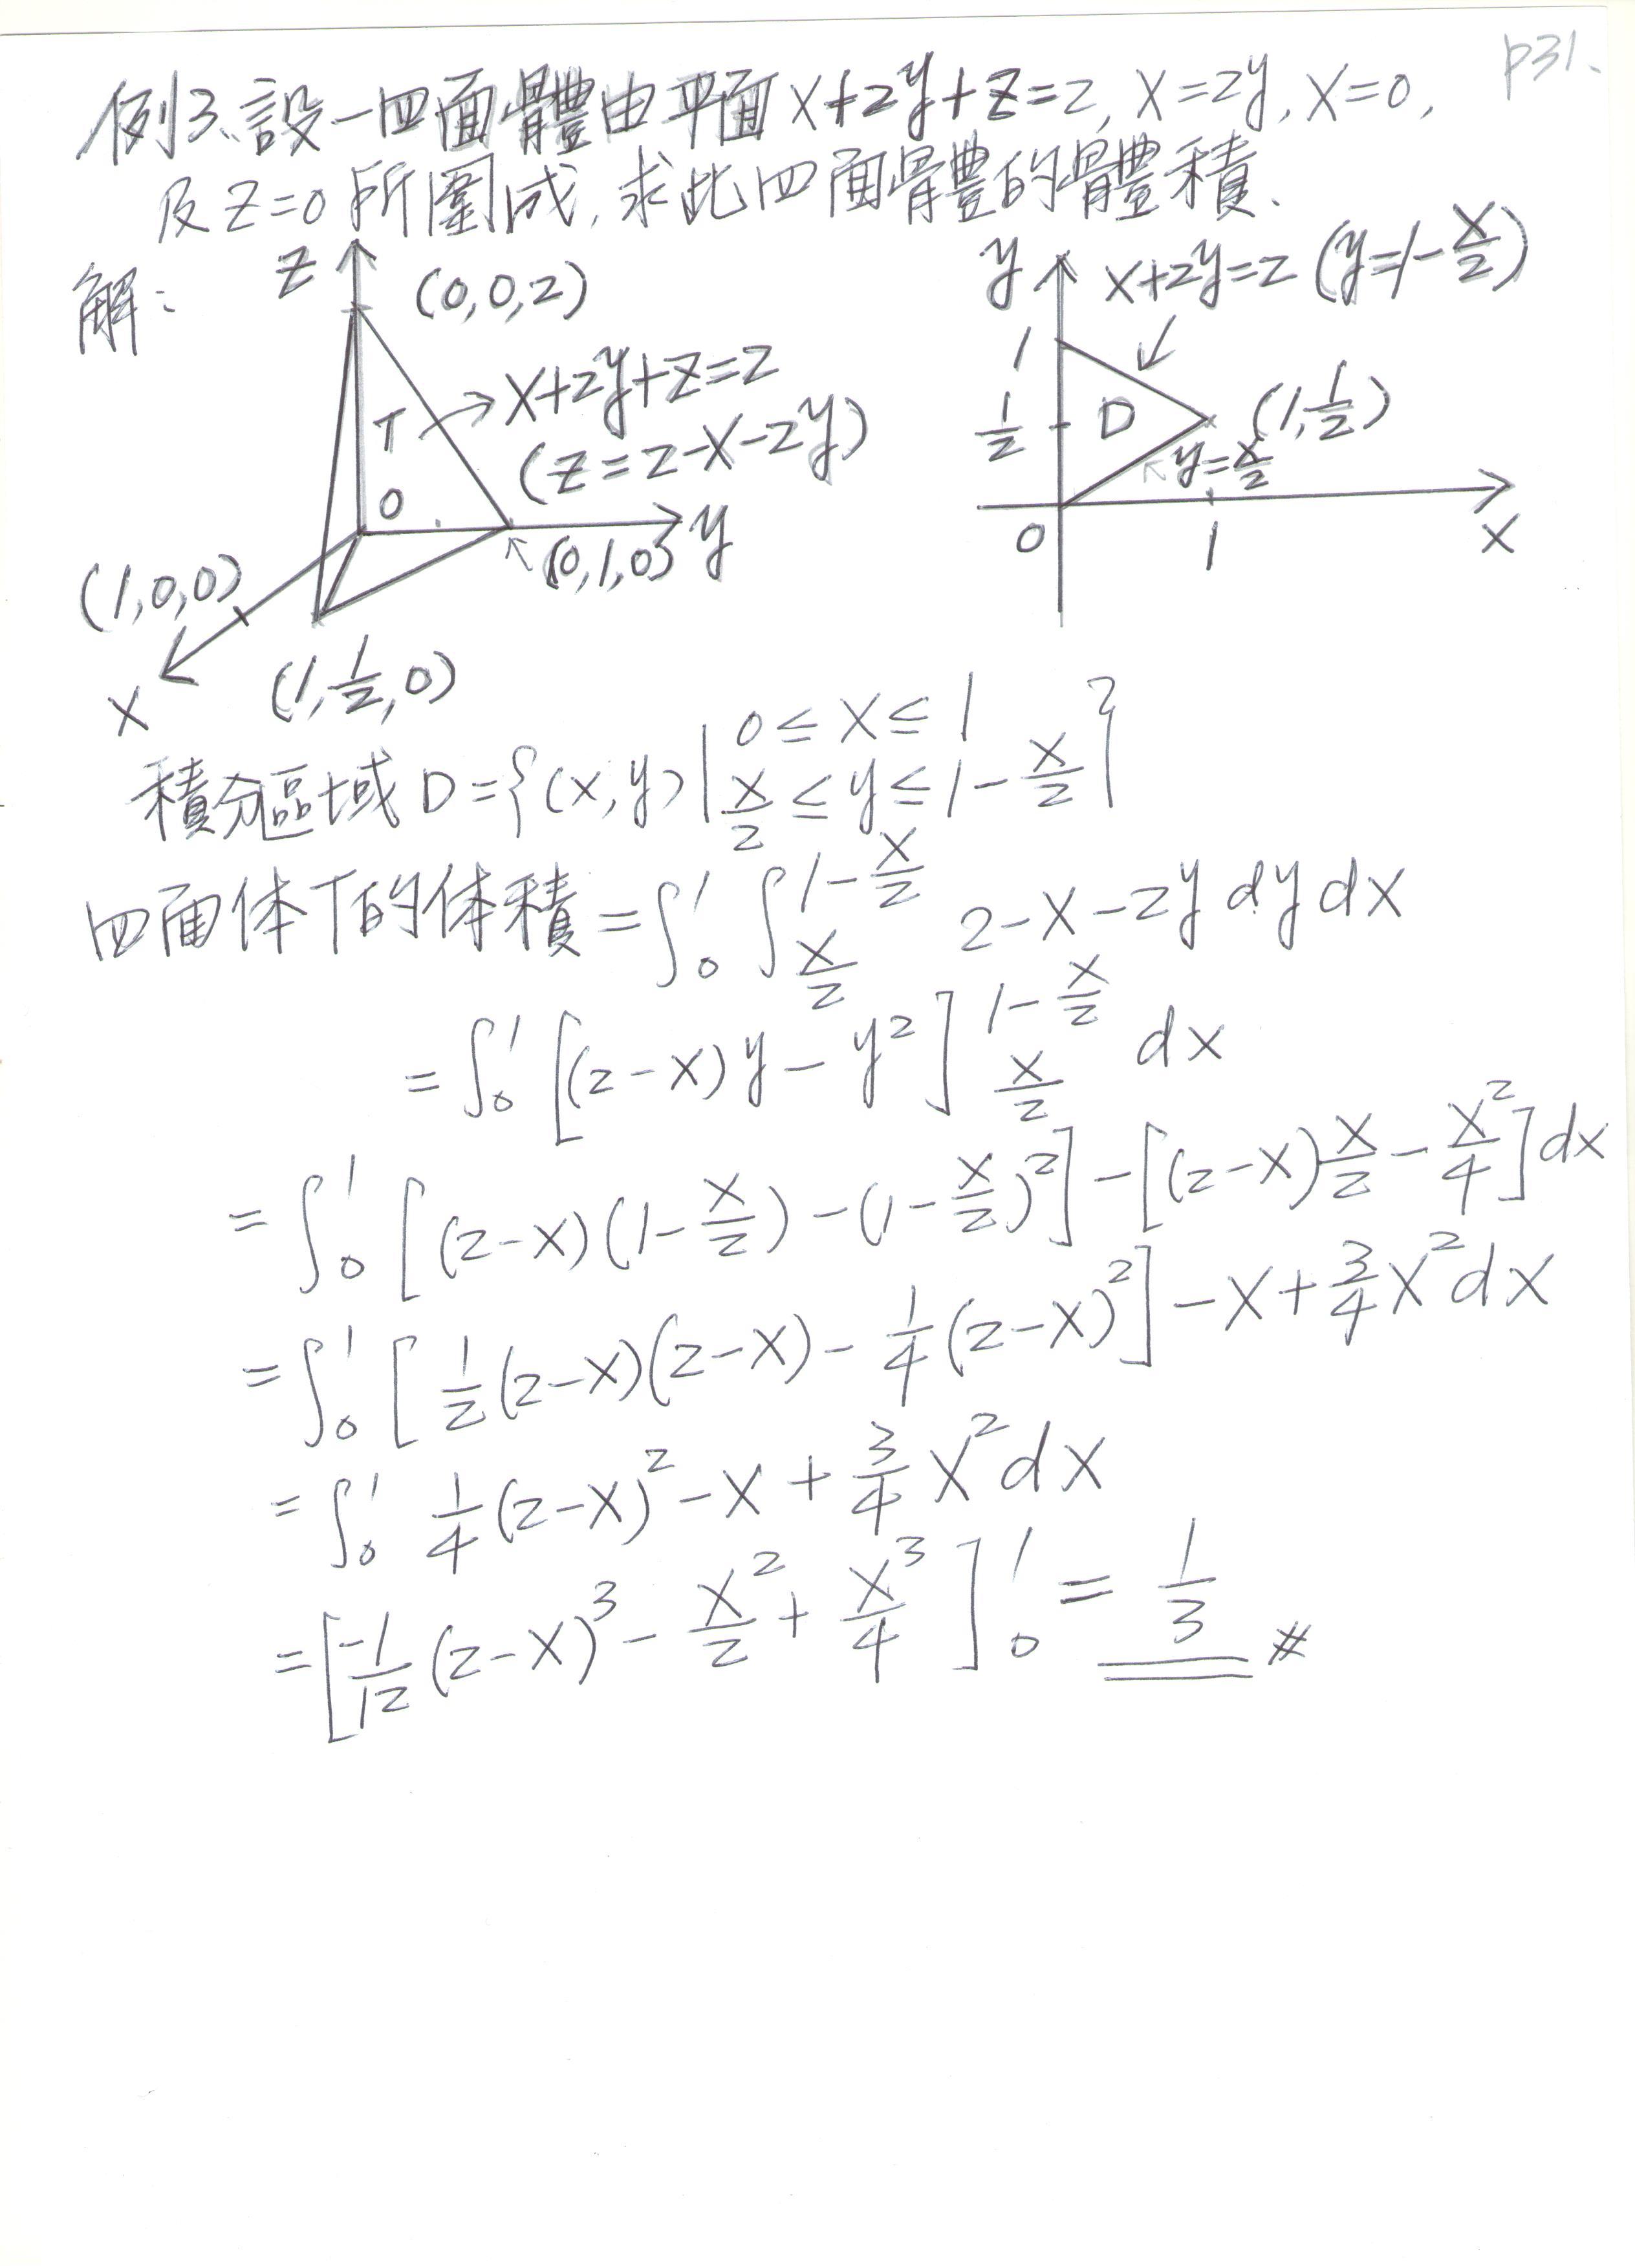 p31.
例3、設一四面體由平面 x+2y+z=2, x=2y, x=0,
及 z=0 所圍成, 求此四面體的體積、
解:
z
(0,0,2)
T → x+2y+z=2
(z=2-x-2y)
O
y
(0,1,0)
(1,0,0)
x
(1,1/2,0)
y
x+2y=2 (y=1-x/2)
1
1/2
D
(1,1/2)
y=x/2
0
1
x
積分區域 D={(x,y) | 0≤x≤1
x/2≤y≤1-x/2}
四面体T的体積=∫₀¹ ∫_{x/2}^{1-x/2} 2-x-2y dy dx
=∫₀¹ [(2-x)y-y²]_{x/2}^{1-x/2} dx
=∫₀¹ [(2-x)(1-x/2)-(1-x/2)²]-[(2-x)x/2-x²/4]dx
=∫₀¹ [1/2(2-x)(2-x)-1/4(2-x)²]-x+3/4x²dx
=∫₀¹ 1/4(2-x)²-x+3/4x²dx
=[-1/12(2-x)³-x²/2+x³/4]₀¹=1/3 #